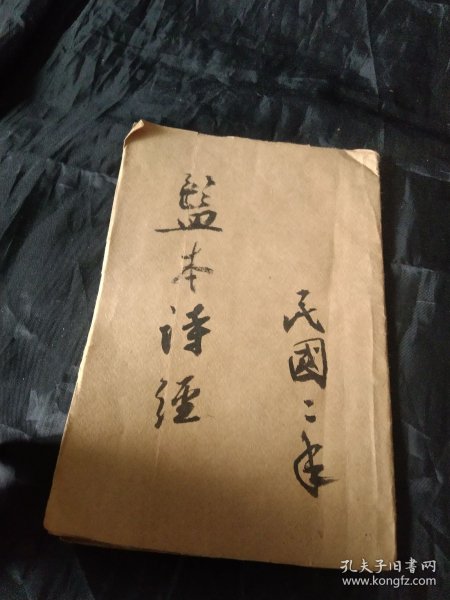 民國二年
監本诗經
孔夫子旧书网
www.kongfz.com